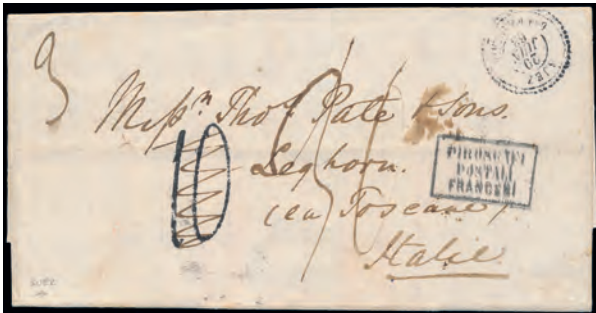 3
Messrs Thos Pate & Sons.
10
Leghorn.
(en Toscane).
Italie
PIROSCAFI
POSTALI
FRANCESI